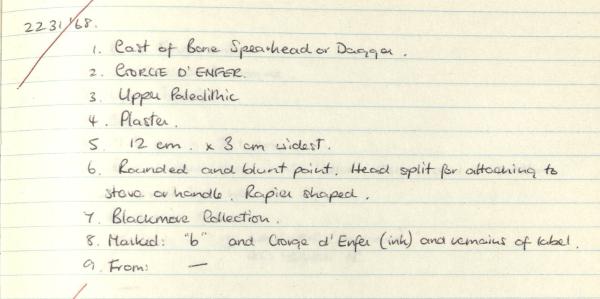 2231'68.
1. Cast of Bone Spearhead or Dagger.
2. GORGE D'ENFER.
3. Upper Paleolithic
4. Plaster.
5. 12 cm. x 3 cm widest.
6. Rounded and blunt point. Head split for attaching to
stave or handle. Rapier shaped.
7. Blackmore Collection.
8. Marked: "b" and Gorge d'Enfer (ink) and remains of label.
9. From: —